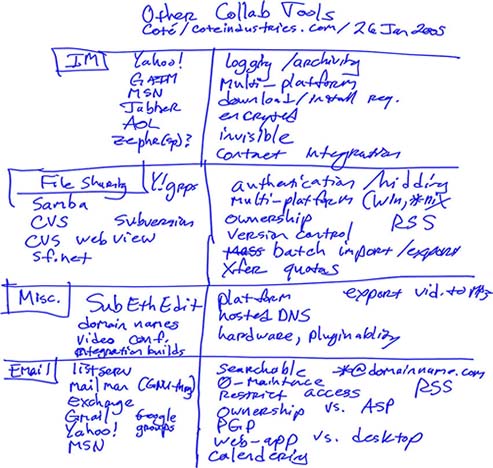 Other Collab Tools
Coté/coteindustries.com/26 Jan 2005
IM
Yahoo!
GAIM
MSN
Jabber
AOL
Zephr(sp)?
logging/archiving
multi-platform
download/install req.
encrypted
invisible
contact integration
File Sharing
Y! grps
Samba
CVS subversion
CVS web view
sf.net
authentication/hidding
multi-platform (win, *nix
ownership RSS
version control
batch import/export
Xfer quotas
Misc.
SubEthEdit
domain names
video conf.
integration builds
platform export vid. to
hosted DNS
hardware, pluginablity
Email
listserv
mailman (GNU-thing)
exchange
Gmail Google
Yahoo! groups
MSN
searchable *@domainname.com
0-maintence RSS
restrict access
ownership vs. ASP
PGP
web-app vs. desktop
calendering